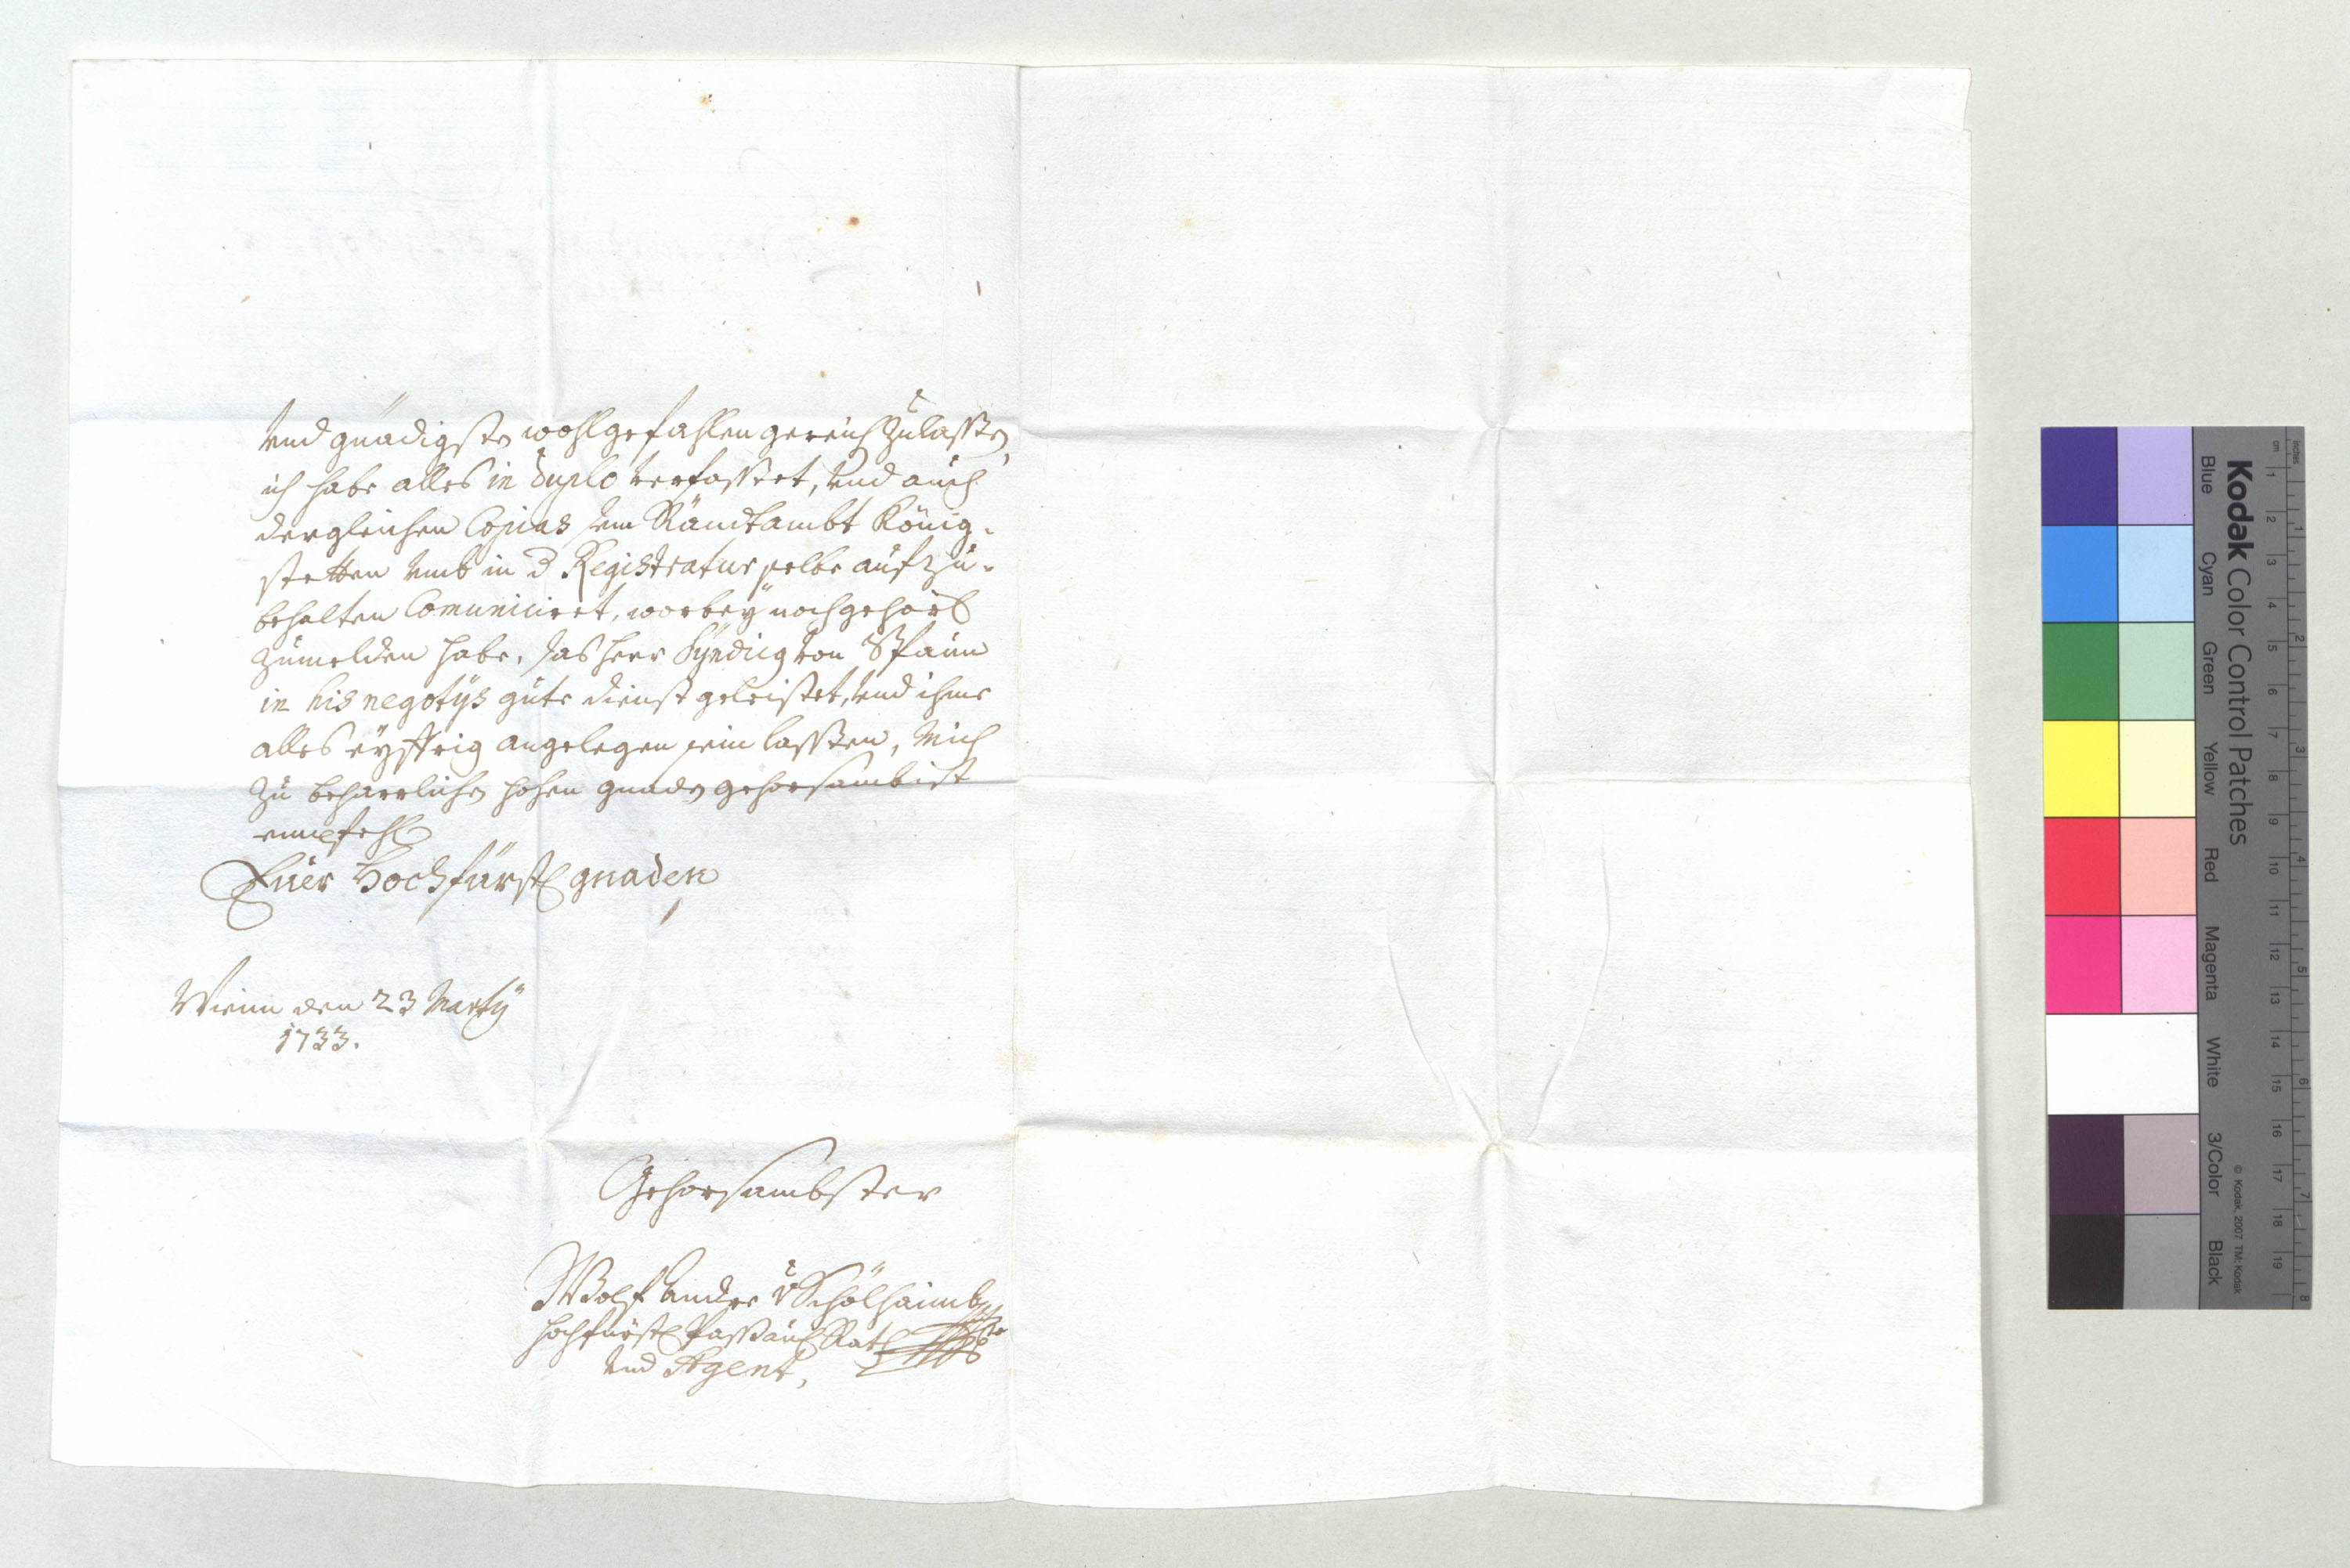 und gnädigsten wohlgefahlen gereich zulassen
ich habe alles in duplo verfasset, und auch
dergleichen Copias dem Rändtambt König-
stetten umb in d Registratur selbe aufzu-
behalten Comuniciret, worbey noch gehors
zumelden habe, das herr Syndicq von Spaun
in his negotÿs gute dienst geleistet, und ihme
alles eÿffrig angelegen sein lassen, Mich
zu beharrlichen hohen gnaden gehorsambist
empfehle
Euer Hochfürstl gnaden
Wienn den 23 Martÿ
1733.
Gehorsambster
Wolf Andre v
hochfürstl Passauis Rath
und Agent,
Kodak Color Control Patches
Blue Cyan Green Yellow Red Magenta White 3/Color Black
© Kodak, 2007 TM: Kodak
inches 1 2 3 4 5 6 7 8
cm 1 2 3 4 5 6 7 8 9 10 11 12 13 14 15 16 17 18 19